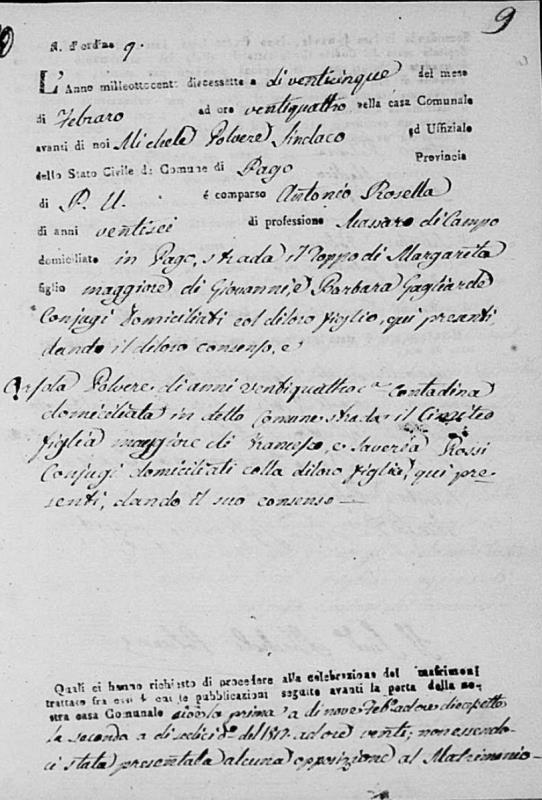 9
N. d'ordine 9.
L'Anno milleottocento diecessette a di venticinque del mese
di Febraro ad ore ventiquattro nella casa Comunale
avanti di noi Michele Polvere Sindaco ed Uffiziale
dello Stato Civile di Comune di Pago Provincia
di P. U. é comparso Antonio Rosella
di anni ventisei di professione Massaro di Campo
domiciliato in Pago, strada il Toppo di Margarita
figlio maggiore di Giovanni, e Barbara Gagliarde
Conjugi domiciliati col diloro figlio, qui presenti,
dando il diloro consenso, e
Orsola Polvere di anni ventiquattro Contadina
domiciliata in detto Comune strada il Cimiteo
figlia maggiore di Francesco, e Saveria Rossi
Conjugi domiciliati colla diloro figlia, qui pre-
senti, dando il suo consenso —
Quali ci hanno richiesto di procedere alla celebrazione del matrimoni
trattato fra essi le pubblicazioni seguite avanti la porta della no-
stra casa Comunale cioè la prima a di nove Feb.o ad ore diecisette
la seconda a di sedici d.o del 1817 ad ore venti; non essendo-
ci stata presentata alcuna opposizione al Matrimonio-